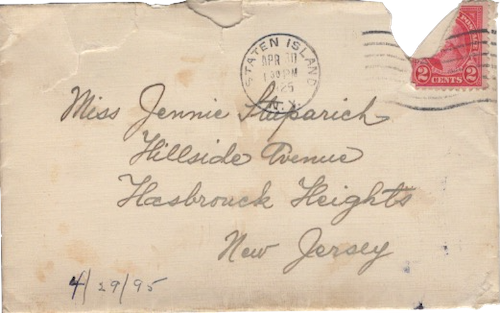 STATEN ISLAND
APR 30
1 30 PM
1925
N.Y.
2 CENTS 2
Miss Jennie Stuparich
Hillside Avenue
Hasbrouck Heights
New Jersey
4/29/95